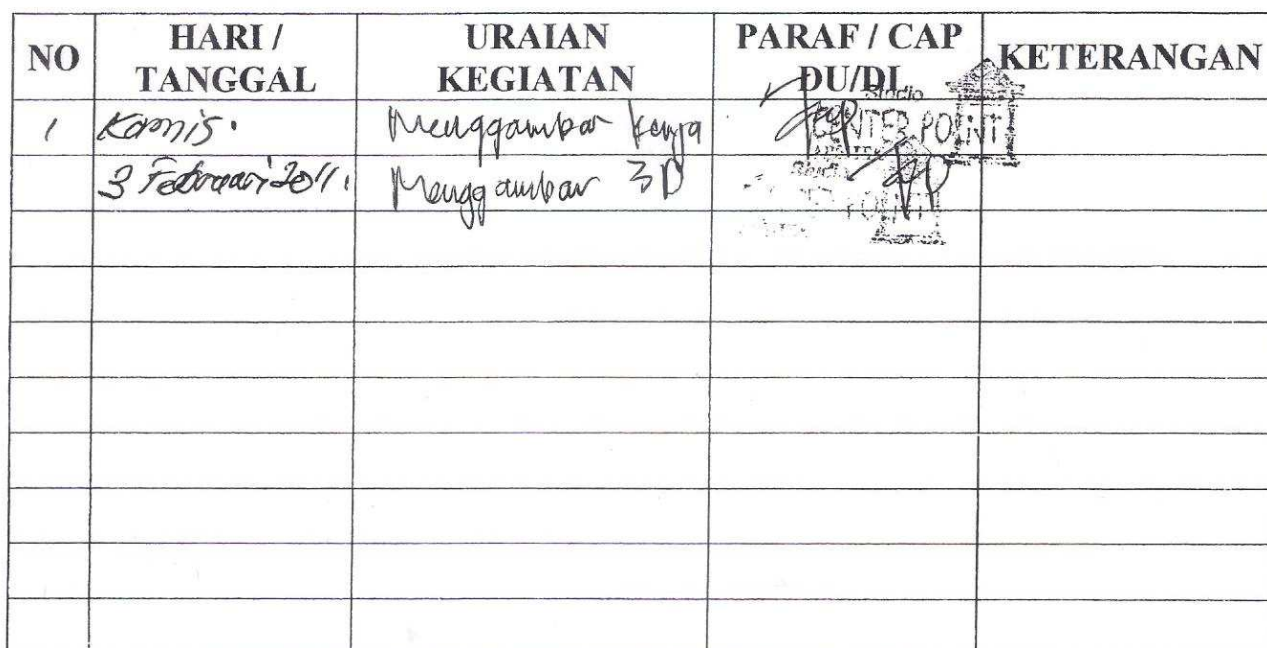 NO HARI / TANGGAL URAIAN KEGIATAN PARAF / CAP DU/DI KETERANGAN
1 Kamis. Menggambar kerja Studio CENTER POINT
3 Februari 2011. Menggambar 3D Studio POINT